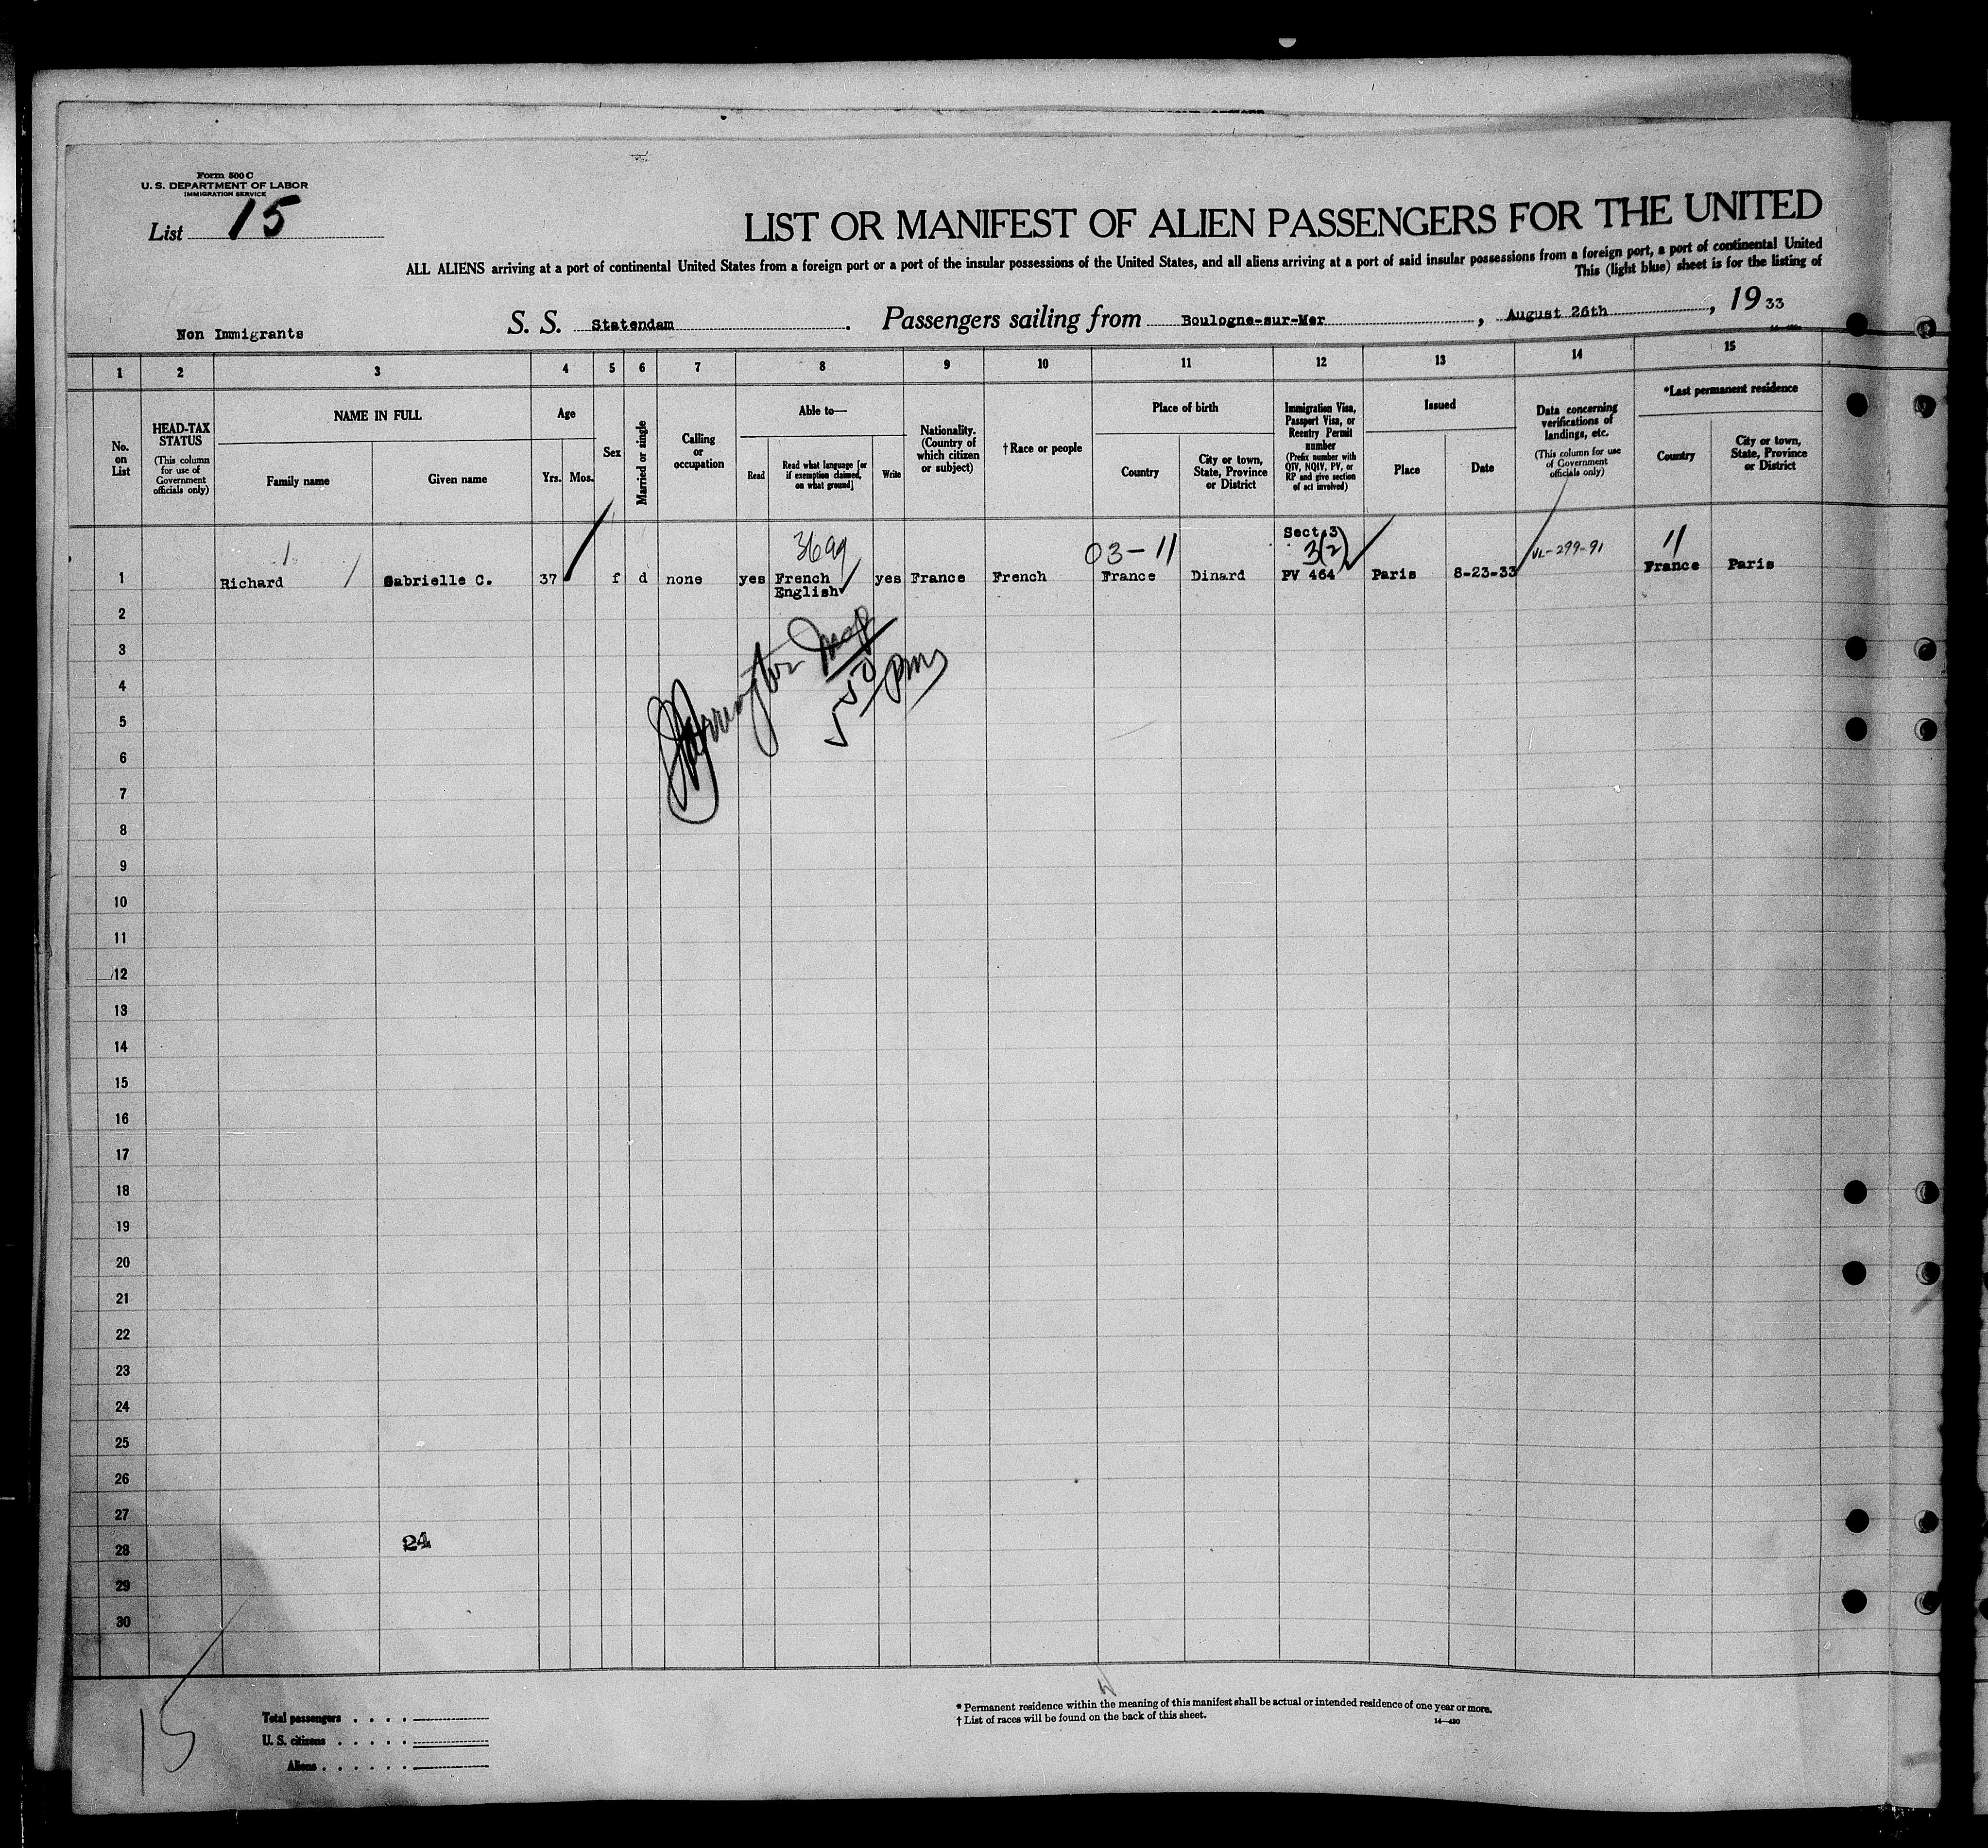 Form 500 C
U. S. DEPARTMENT OF LABOR
IMMIGRATION SERVICE
List 15
LIST OR MANIFEST OF ALIEN PASSENGERS FOR THE UNITED
ALL ALIENS arriving at a port of continental United States from a foreign port or a port of the insular possessions of the United States, and all aliens arriving at a port of said insular possessions from a foreign port, a port of continental United
This (light blue) sheet is for the listing of
Non Immigrants S. S. Statendam. Passengers sailing from Boulogne-sur-Mer, August 26th, 19 33
1 2 3 4 5 6 7 8 9 10 11 12 13 14 15
No. on List
HEAD-TAX STATUS
(This column for use of Government officials only)
NAME IN FULL
Family name
Given name
Age
Yrs. Mos.
Sex
Married or single
Calling or occupation
Able to—
Read
Read what language [or if exemption claimed, on what ground]
Write
Nationality. (Country of which citizen or subject)
†Race or people
Place of birth
Country
City or town, State, Province or District
Immigration Visa, Passport Visa, or Reentry Permit number
(Prefix number with QIV, NQIV, PV, or RP and give section of act involved)
Issued
Place
Date
Data concerning verifications of landings, etc.
(This column for use of Government officials only)
*Last permanent residence
Country
City or town, State, Province or District
Sect.3
3(2)
3699
03-11
VL-299-91
11
1 Richard Gabrielle C. 37 f d none yes French yes France French France Dinard PV 464 Paris 8-23-33 France Paris
English
2
3
4
5
6
7
8
9
10
11
12
13
14
15
16
17
18
19
20
21
22
23
24
25
26
27
28
29
30
24
15
Total passengers . . . .
U. S. citizens . . . . .
Aliens . . . . . .
* Permanent residence within the meaning of this manifest shall be actual or intended residence of one year or more.
† List of races will be found on the back of this sheet.
14—430